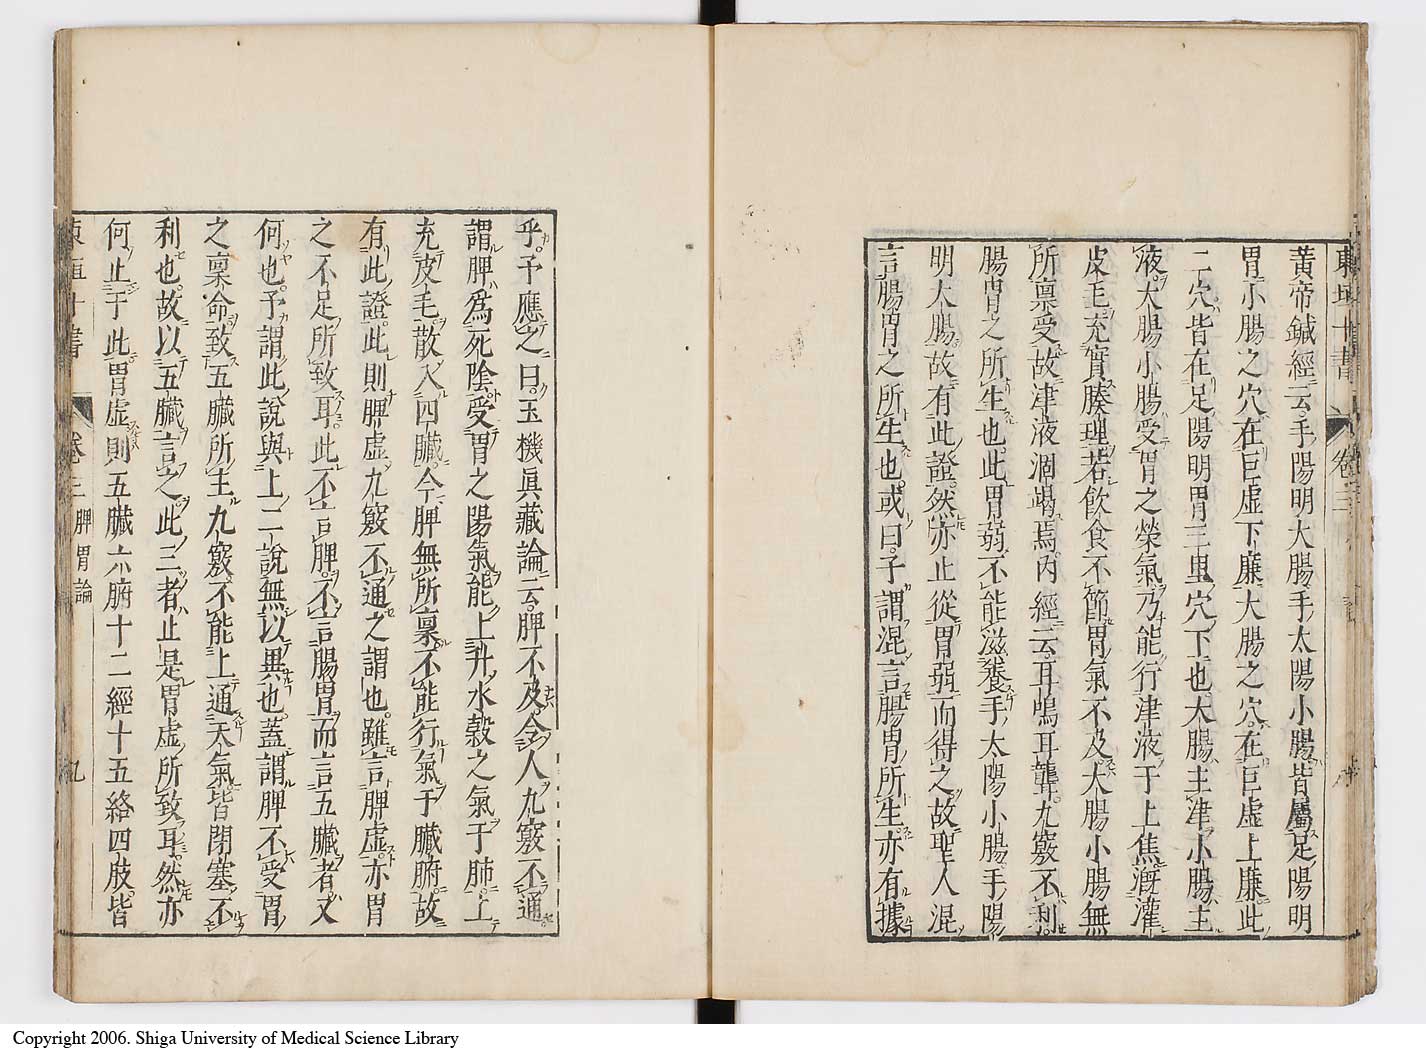 東垣十書
卷三
黃帝鍼經云手陽明大腸手太陽小腸皆屬足陽明
胃小腸之穴在巨虛下廉大腸之穴在巨虛上廉此
二穴皆在足陽明胃三里穴下也大腸主津小腸主
液大腸小腸受胃之榮氣乃能行津液于上焦漑灌
皮毛充實腠理若飮食不節胃氣不及大腸小腸無
所稟受故津液涸竭焉內經云耳鳴耳聾九竅不利
腸胃之所生也此胃弱不能滋養手太陽小腸手陽
明大腸故有此證然亦止從胃弱而得之故聖人混
言腸胃之所生也或曰子謂混言腸胃所生亦有據
乎予應之曰玉機眞藏論云脾不及令人九竅不通
謂脾爲死陰受胃之陽氣能上升水穀之氣于肺上
充皮毛散入四臟今脾無所稟不能行氣于臟腑故
有此證此則脾虛九竅不通之謂也雖言脾虛亦胃
之不足所致耳此不言脾不言腸胃而言五臟者又
何也予謂此說與上二說無以異也蓋謂脾不受胃
之稟命致五臟所主九竅不能上通天氣皆閉塞不
利也故以五臟言之此三者止是胃虛所致耳然亦
何止于此胃虛則五臟六腑十二經十五絡四肢皆
東垣十書
卷三 脾胃論
九
Copyright 2006. Shiga University of Medical Science Library